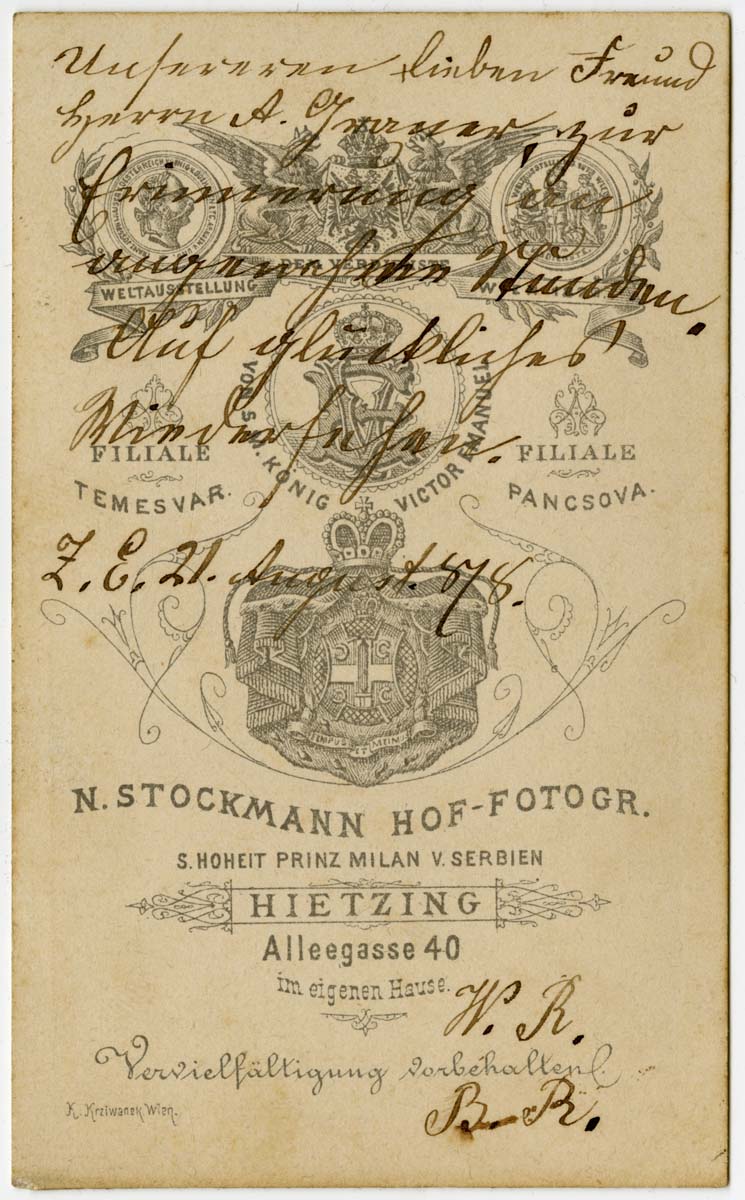 Unsereren lieben Freund
Herrn A. Graner, zur
Erinnerung an
angenehme Stunden.
Auf glückliches
Wiedersehen.
Z. E. 21. August. 878.
DEM VERDIENSTE
WELTAUSSTELLUNG
VON S. M. KÖNIG VICTOR EMANUEL
FILIALE
TEMESVAR.
FILIALE
PANCSOVA.
TEMPUS ET MEUM
N. STOCKMANN HOF-FOTOGR.
S. HOHEIT PRINZ MILAN V. SERBIEN
HIETZING
Alleegasse 40
im eigenen Hause.
W. R.
Vervielfältigung vorbehalten.
B. R.
K. Krziwanek Wien.